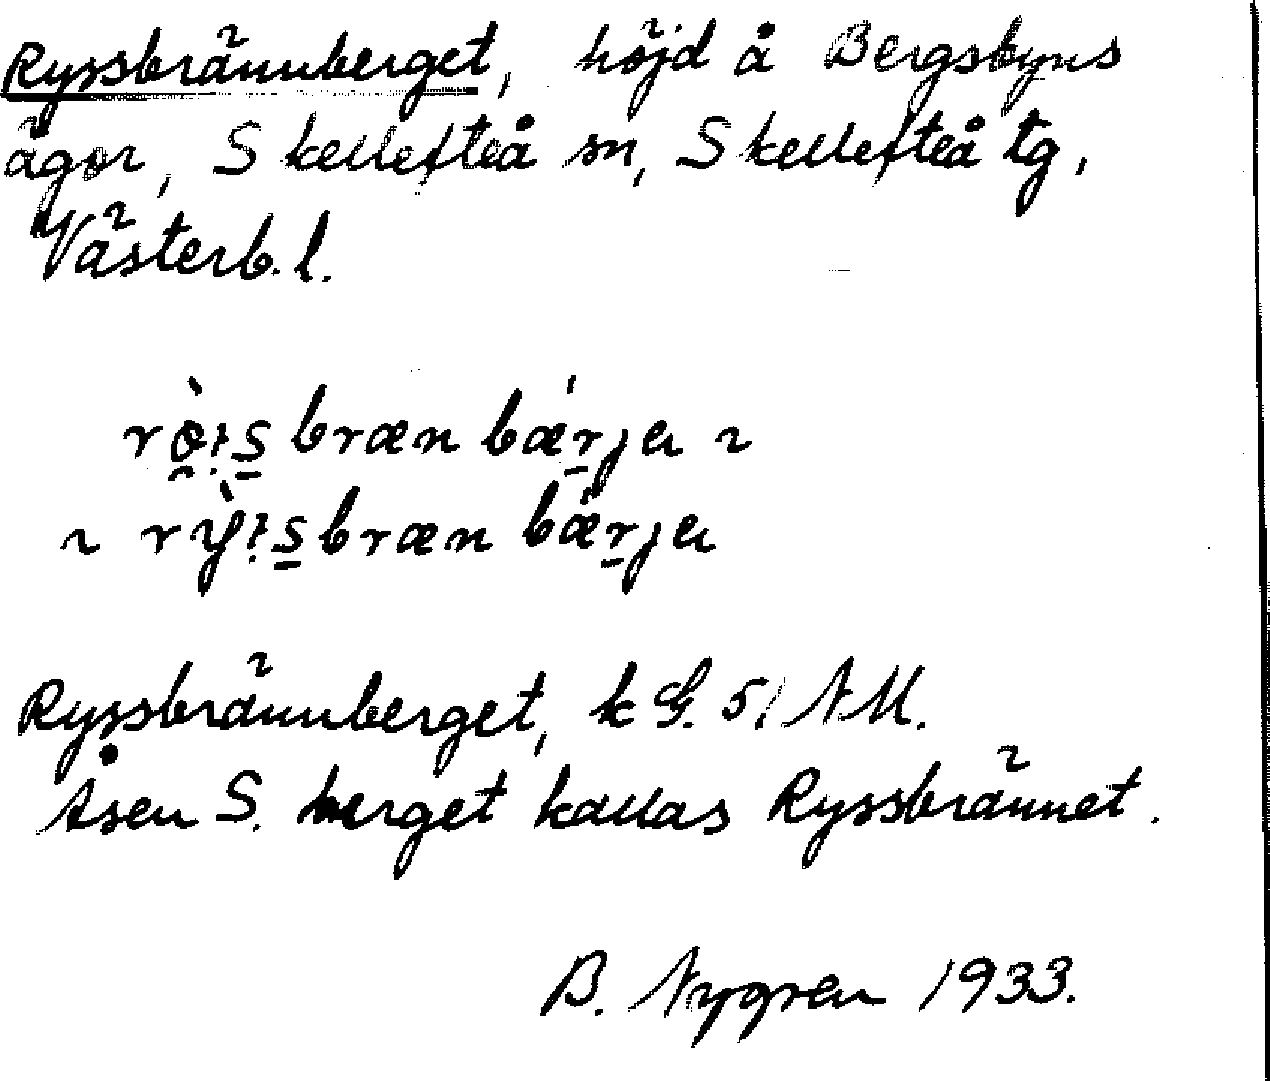 Ryssbrännberget, höjd å Bergsbyns
ägor, Skellefteå sn, Skellefteå tg,
Västerb. l.
bræn bǽr̠ja ~
~ bræn bǽr̠ja
Ryssbrännberget, k G. 51 NM.
Åsen S. berget kallas Ryssbrännet.
B. Nygren 1933.